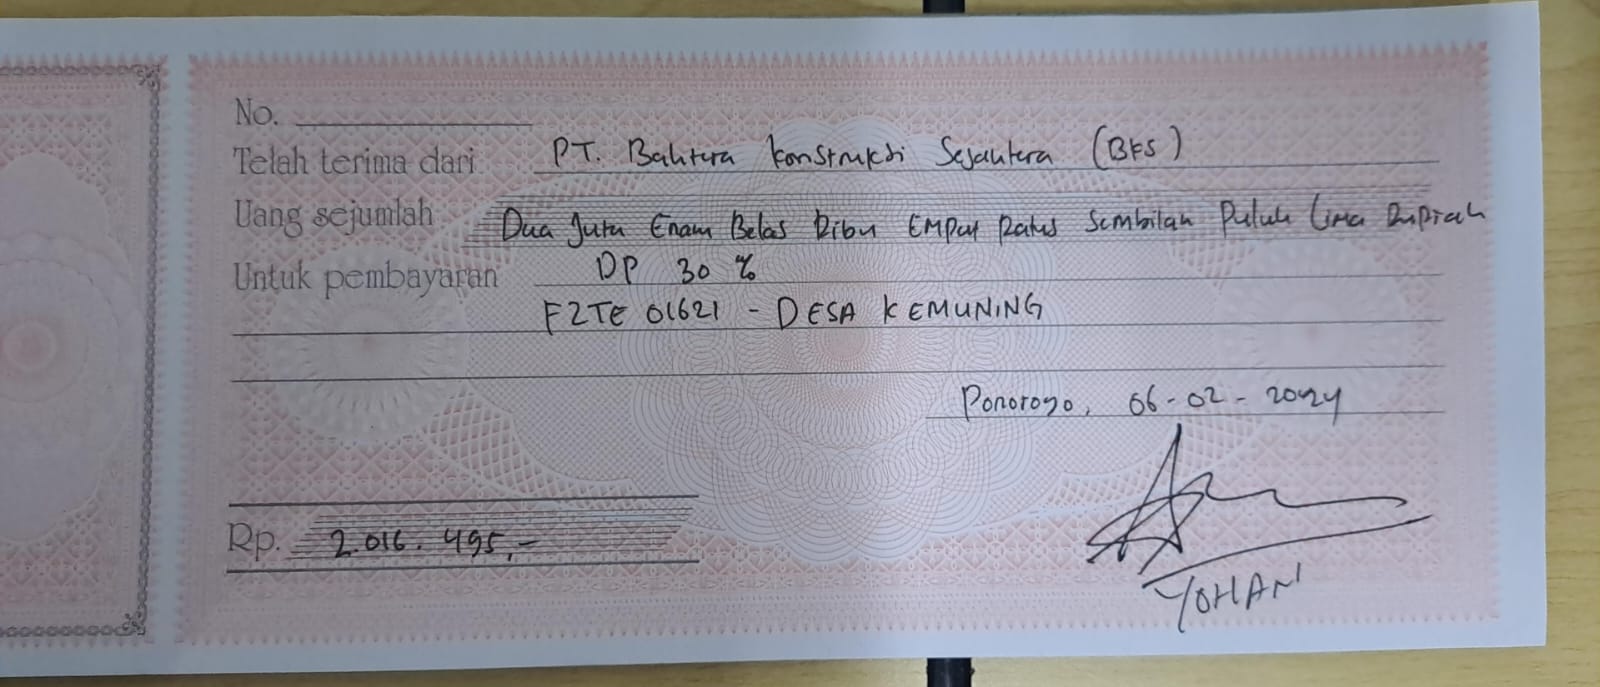 No.
Telah terima dari PT. Bahtera Konstruksi Sejahtera (BKS)
Uang sejumlah Dua Juta Enam Belas Ribu Empat Ratus Sembilan Puluh Lima Rupiah
Untuk pembayaran DP 30 %
F2TE 01621 - DESA KEMUNING
Ponorogo, 06-02-2024
Rp. 2.016.495,-
YOHAN